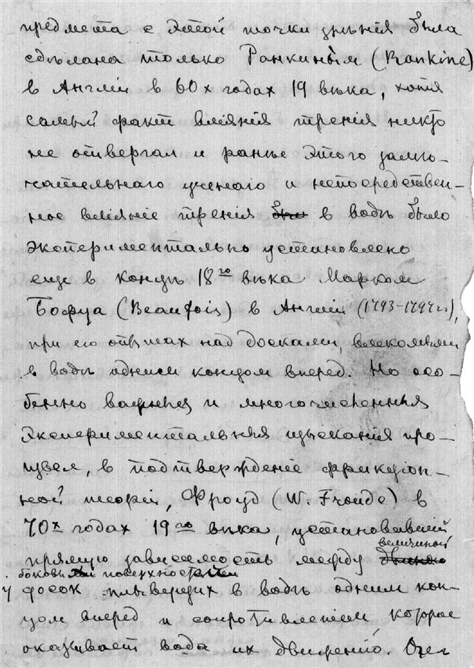 предмета с этой точки зрѣнія была
сдѣлана только Ранкиным (Rankine)
в Англіи в 60х годах 19 вѣка, хотя
самый факт вліянія тренія никто
не отвергал и ранѣе этого замѣ-
чательнаго ученаго и непосредствен-
ное вліяніе тренія было в водѣ было
экспериментально установлено
еще в концѣ 18го вѣка Марком
Бофуа (Beaufois) в Англіи (1793-1794 гг),
при его опытах над досками, влекомыми
в водѣ одним концом вперед. Но осо-
бенно важныя и многочисленныя
экспериментальныя изысканія про-
извел, в подтвержденіе фрикціон-
ной теоріи, Фроуд (W. Froude) в
70х годах 19го вѣка, установившій
прямую зависимость между величиной
боковых поверхностей
у досок плывущих в водѣ одним кон-
цом вперед и сопротивленіем которое
оказывает вода их движенію. Очег